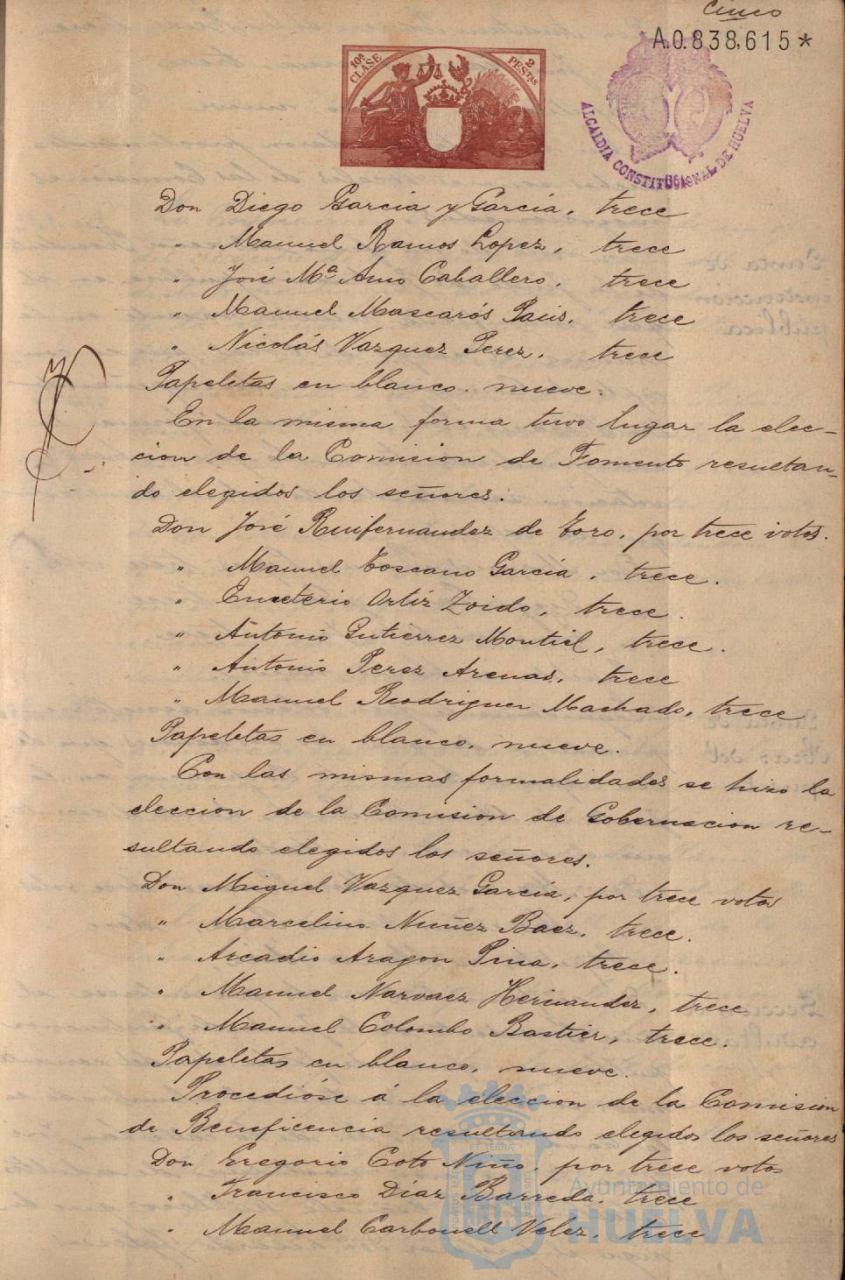 cinco
A.0.838,615*
10ª CLASE 2 PESTAS
ALCALDIA CONSTITUCIONAL DE HUELVA
Don Diego Garcia y Garcia, trece
" Manuel Ramos Lopez, trece
" José Mª Amo Caballero, trece
" Manuel Mascarós, trece
" Nicolás Vazquez Perez, trece
Papeletas en blanco. nueve.
En la misma forma tuvo lugar la elec-
cion de la Comision de Fomento resultan-
do elegidos los señores:
Don José Ruifernandez de Toro, por trece votos.
" Manuel Toscano Garcia, trece.
" Emeterio Ortiz Zoido, trece.
" Antonio Gutierrez Montiel, trece.
" Antonio Perez Arenas, trece
" Manuel Rodriguez Machado, trece
Papeletas en blanco, nueve.
Con las mismas formalidades se hizo la
eleccion de la Comision de Gobernacion re-
sultando elegidos los señores.
Don Miguel Vazquez Garcia, por trece votos
" Marcelino Nuñez Baez, trece.
" Arcadio Aragon Pina, trece.
" Manuel Narvaez Hernandez, trece
" Manuel Colombo Bastier, trece.
Papeletas en blanco, nueve.
Procedióse á la eleccion de la Comision
de Beneficencia resultando elegidos los señores
Don Gregorio Coto Niño, por trece votos
" Francisco Diaz Barreda, trece
" Manuel Carbonell Velez, trece
Ayuntamiento de
HUELVA